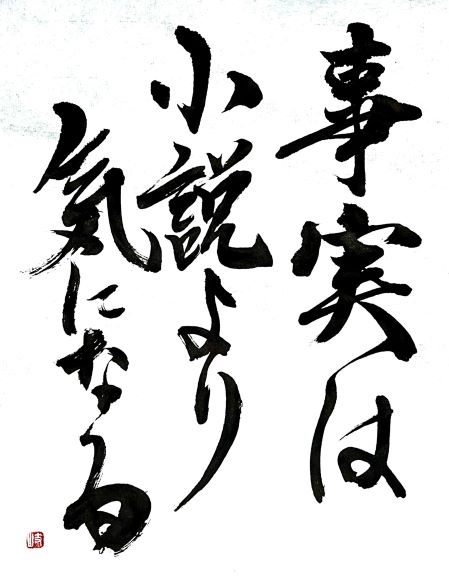 事実は
小説より
気になる